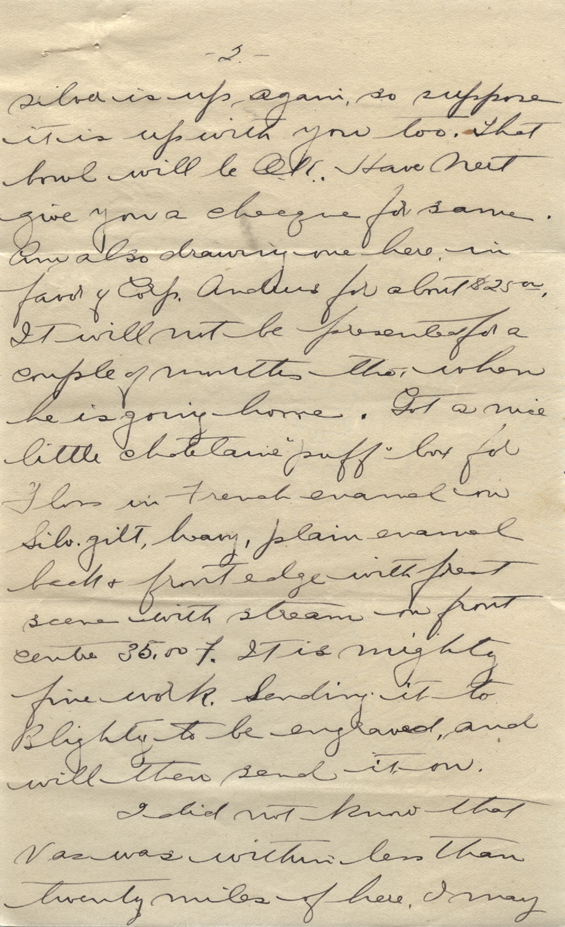 - 2 -
silver is up again, so suppose
it is up with you too. That
bowl will be O.K. Have Nert
give you a cheque for same.
Am also drawing one here, in
favor of Corp. Andrus for about $25.00.
It will not be presented for a
couple of months tho; when
he is going home. Got a nice
little chatelaine "puff" box for
Floss in French enamel on
Silv. gilt, heavy, plain enamel
back & front edge with forest
scene with stream on front
centre 35.00 f. It is mighty
fine work. Sending it to
Blighty to be engraved, and
will then send it on.
I did not know that
Vas was within less than
twenty miles of here. I may